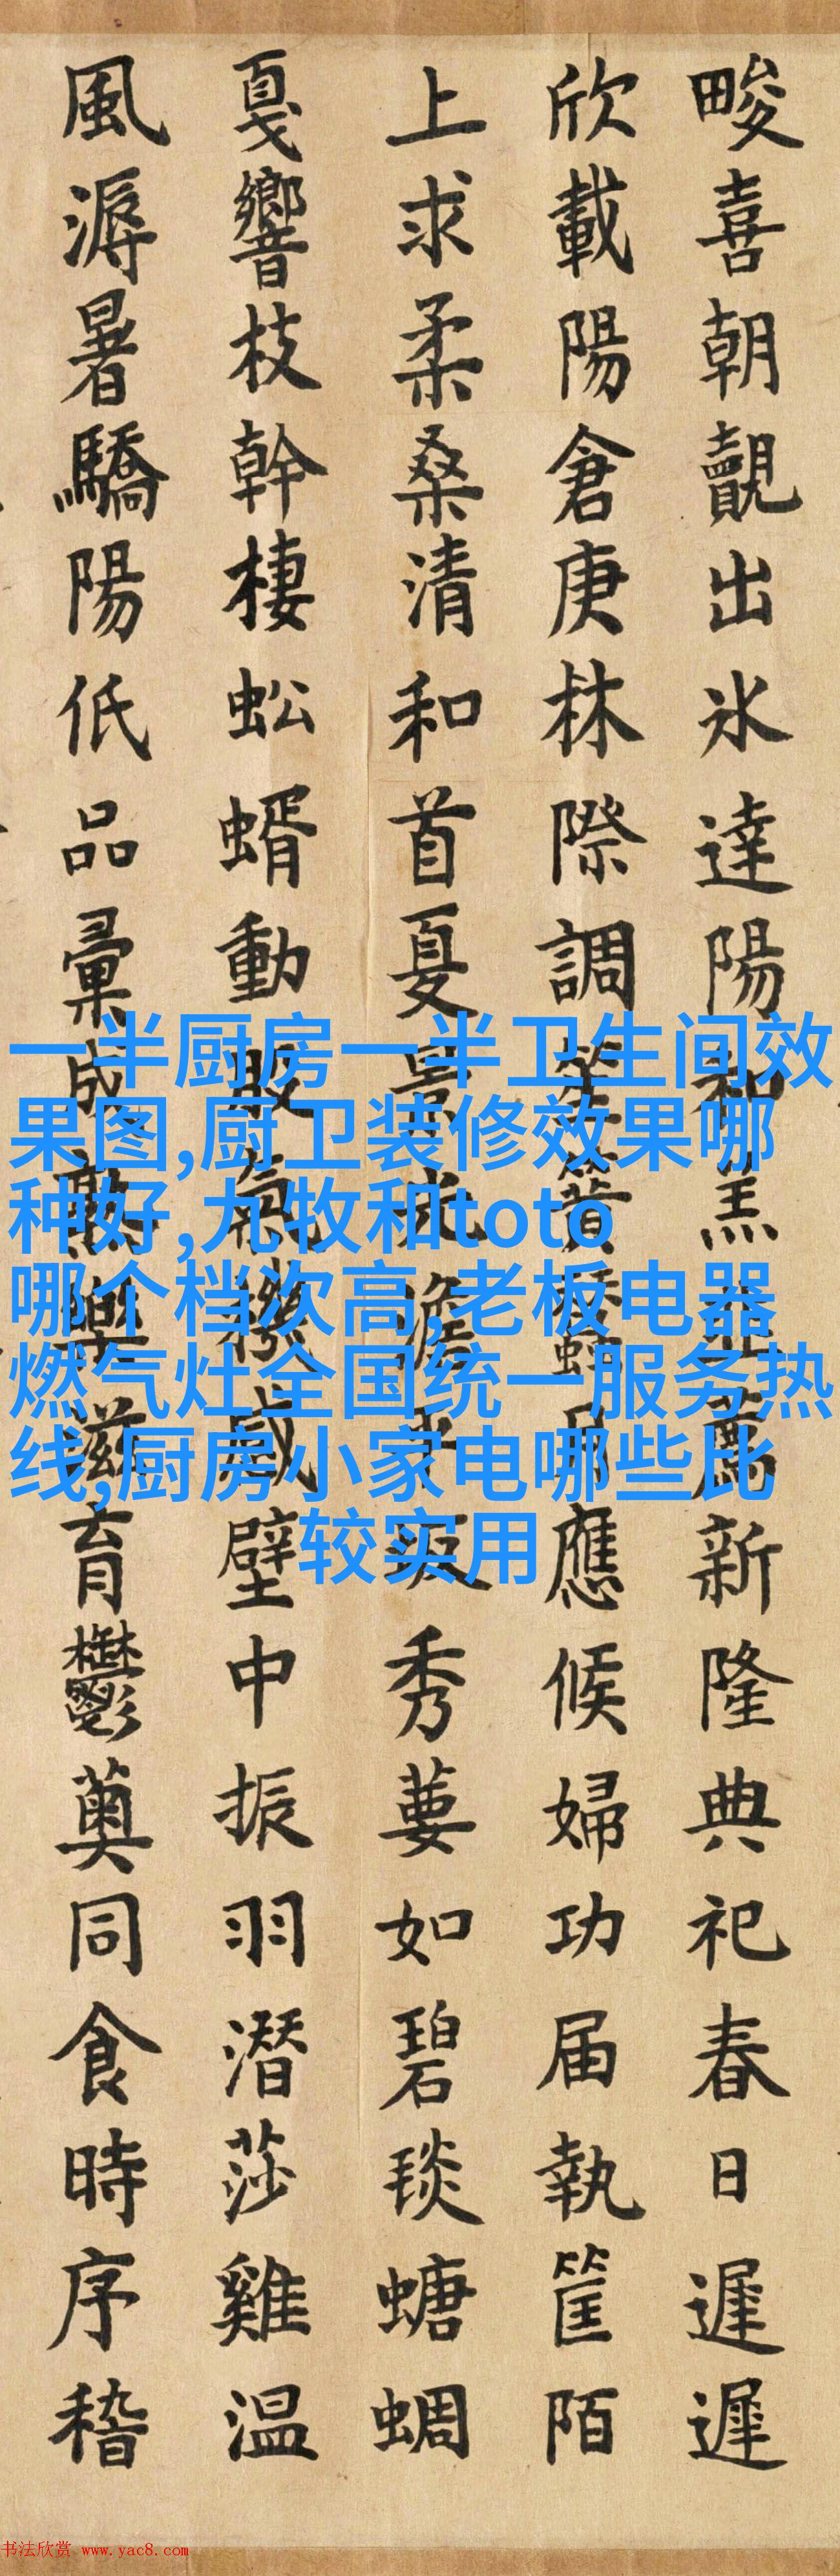 畯喜朝覿出氷達陽和羔韭薦新隆典祀春日遲遲
欣載陽倉庚林際調笙簧蠶月應候婦功届執筐陌
上求柔桑清和首夏景光秀葽如碧琰螗蜩
戛響枝幹棲蚣蝑動股氣機感壁中振羽潛莎雞温
風溽暑驕陽低品彙成熟樂滋育鬱薁同食時序稽
一半厨房一半卫生间效
果图,厨卫装修效果哪
种好,九牧和toto
哪个档次高,老板电器
燃气灶全国统一服务热
线,厨房小家电哪些比
较实用
书法欣赏 www.yac8.com